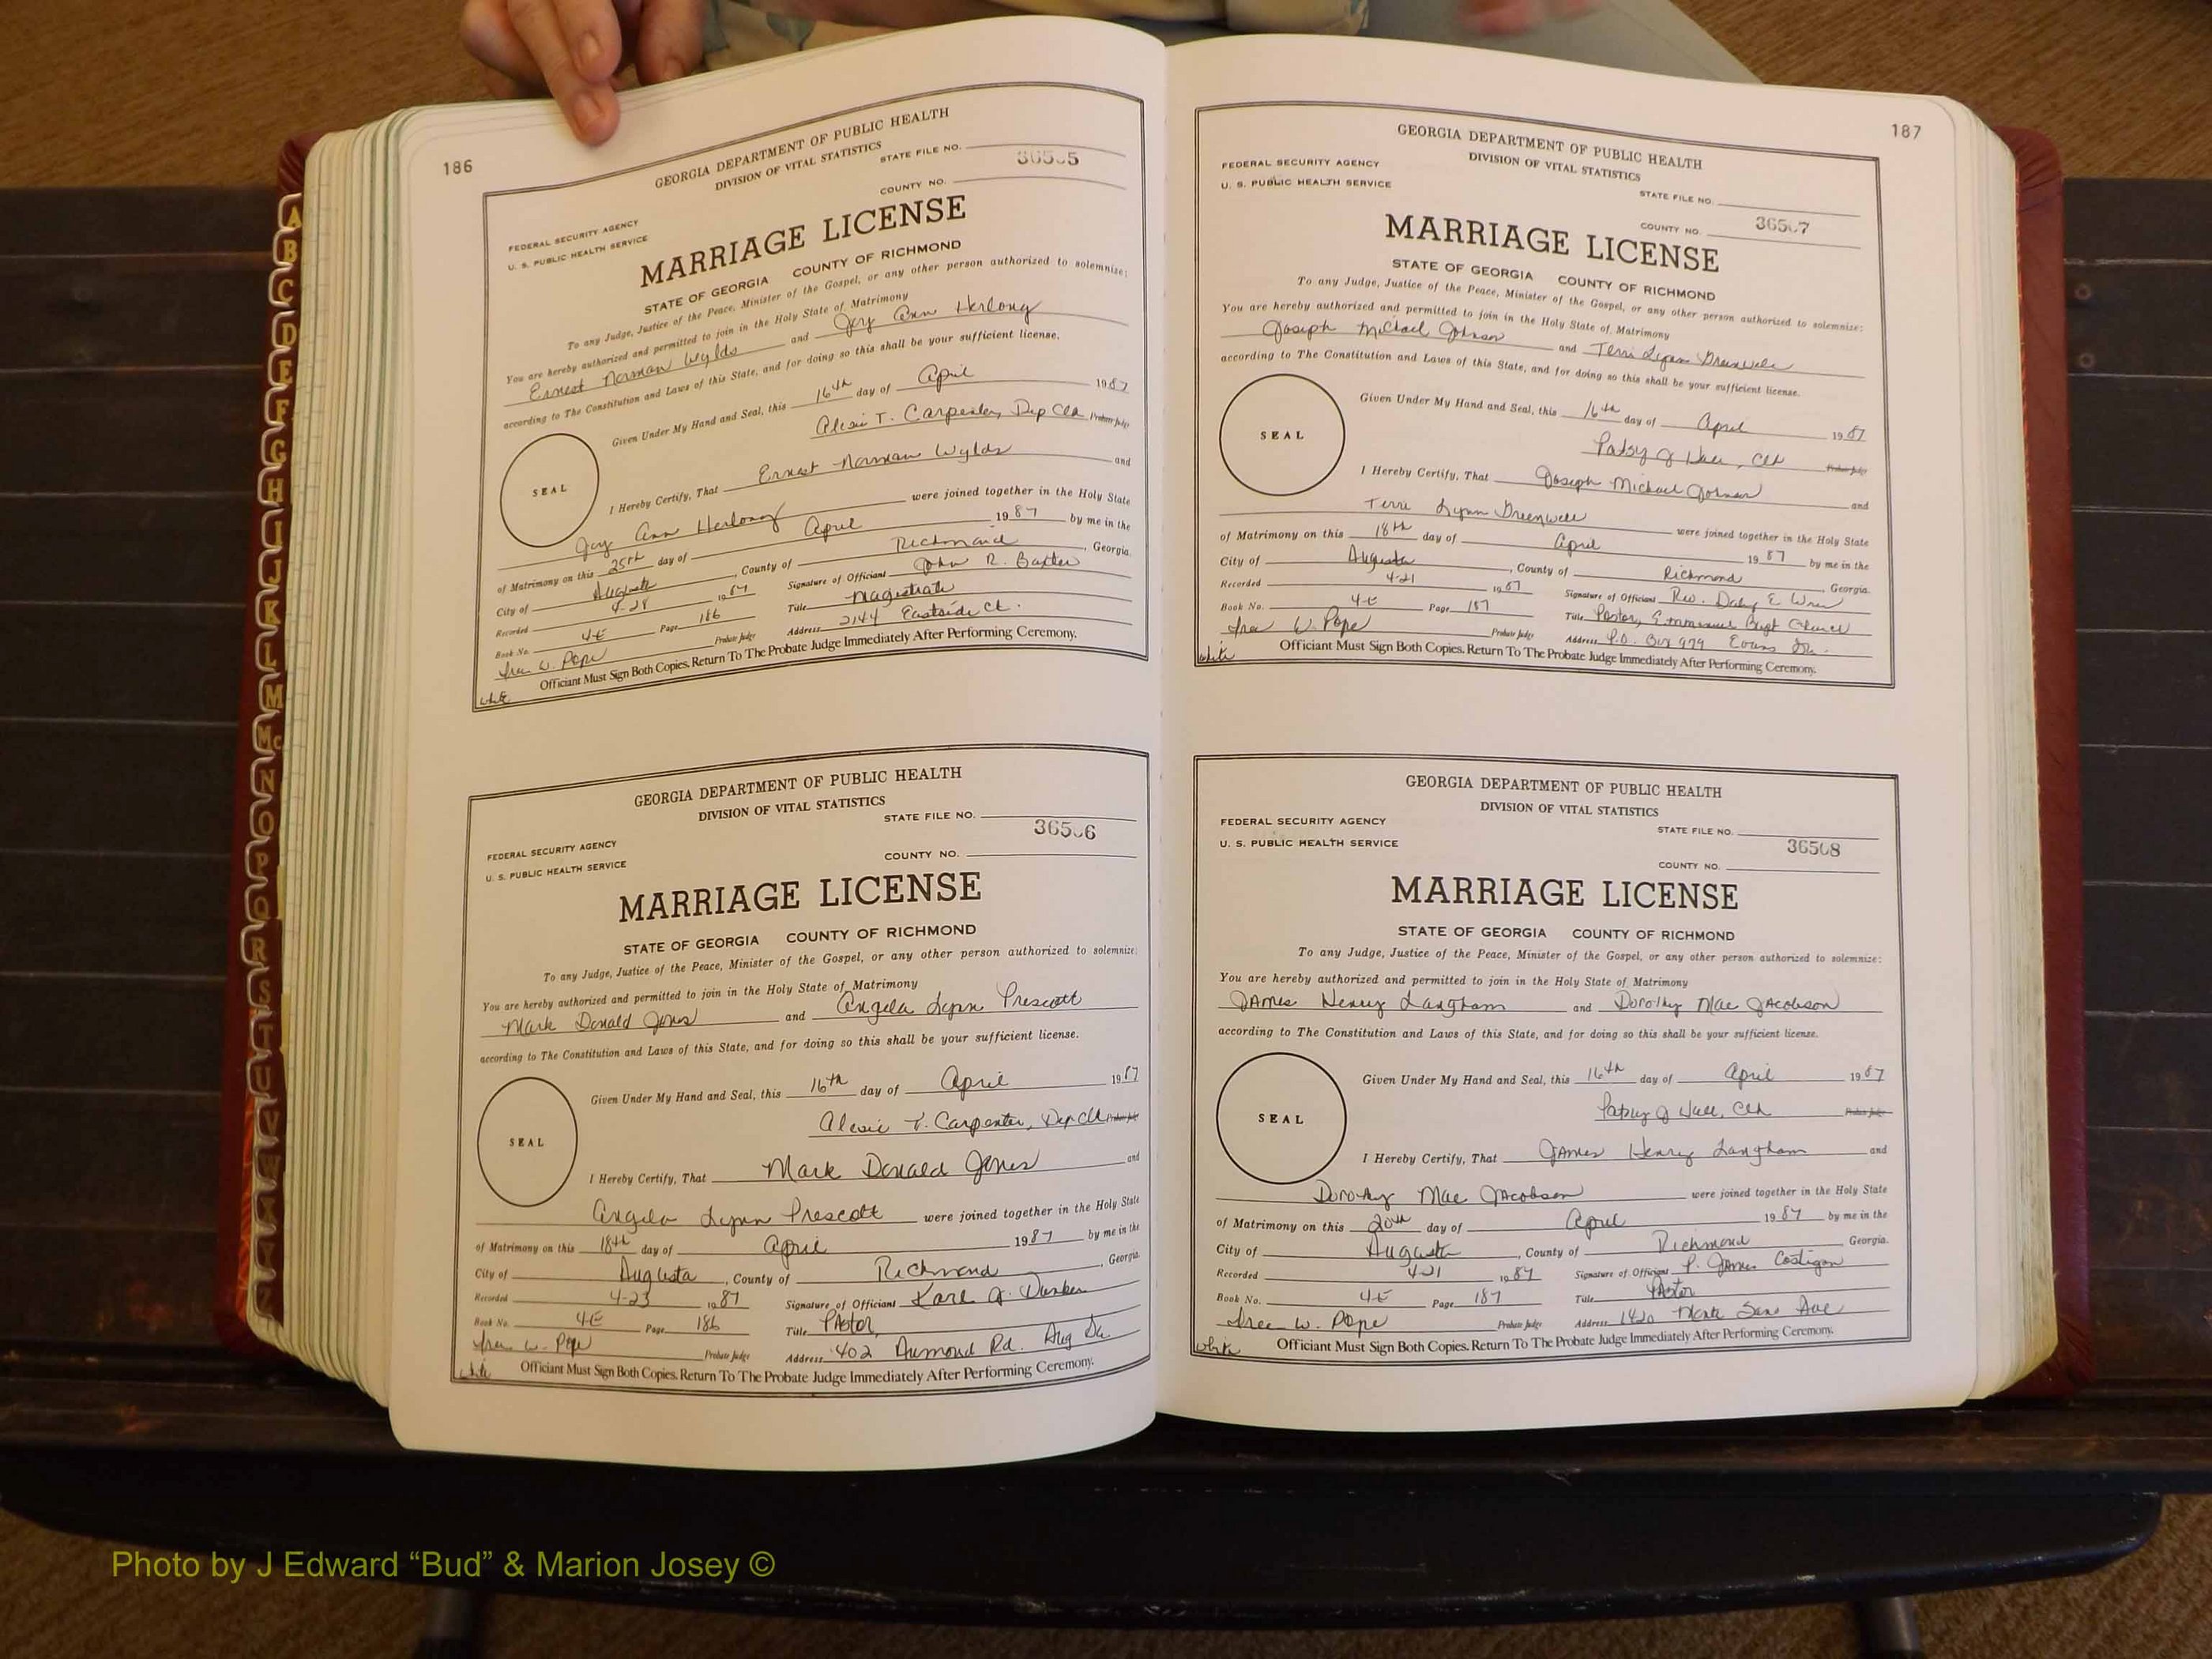 186
GEORGIA DEPARTMENT OF PUBLIC HEALTH
DIVISION OF VITAL STATISTICS
STATE FILE NO.
36505
COUNTY NO.
FEDERAL SECURITY AGENCY
U. S. PUBLIC HEALTH SERVICE
MARRIAGE LICENSE
STATE OF GEORGIA COUNTY OF RICHMOND
To any Judge, Justice of the Peace, Minister of the Gospel, or any other person authorized to solemnize:
You are hereby authorized and permitted to join in the Holy State of Matrimony
Ernest Norman Wylds and Joy Ann Herlong
according to The Constitution and Laws of this State, and for doing so this shall be your sufficient license.
Given Under My Hand and Seal, this 16th day of April 1987
T. Carpenter, Dep Clk Probate Judge
SEAL
I Hereby Certify, That Ernest Norman Wylds and
Joy Ann Herlong were joined together in the Holy State
of Matrimony on this 25th day of April 1987 by me in the
City of Augusta, County of Richmond, Georgia.
Recorded 4-28 1987 Signature of Officiant John R. Baxter
Book No. 4-E Page 186 Title Magistrate
W. Pope Probate Judge Address 2144 Eastside Ct.
white Officiant Must Sign Both Copies. Return To The Probate Judge Immediately After Performing Ceremony.
GEORGIA DEPARTMENT OF PUBLIC HEALTH
DIVISION OF VITAL STATISTICS
STATE FILE NO.
36506
FEDERAL SECURITY AGENCY
COUNTY NO.
U. S. PUBLIC HEALTH SERVICE
MARRIAGE LICENSE
STATE OF GEORGIA COUNTY OF RICHMOND
To any Judge, Justice of the Peace, Minister of the Gospel, or any other person authorized to solemnize:
You are hereby authorized and permitted to join in the Holy State of Matrimony
Mark Donald Jones and Angela Lynn Prescott
according to The Constitution and Laws of this State, and for doing so this shall be your sufficient license.
Given Under My Hand and Seal, this 16th day of April 1987
T. Carpenter, Dep Clk Probate Judge
SEAL
I Hereby Certify, That Mark Donald Jones and
Angela Lynn Prescott were joined together in the Holy State
of Matrimony on this 18th day of April 1987 by me in the
City of Augusta, County of Richmond, Georgia.
Recorded 4-23 1987 Signature of Officiant Karl
Book No. 4E Page 186 Title Pastor
W. Pope Probate Judge Address 402 Rd. Aug Ga
white Officiant Must Sign Both Copies. Return To The Probate Judge Immediately After Performing Ceremony.
187
GEORGIA DEPARTMENT OF PUBLIC HEALTH
FEDERAL SECURITY AGENCY
DIVISION OF VITAL STATISTICS
U. S. PUBLIC HEALTH SERVICE
STATE FILE NO.
36507
COUNTY NO.
MARRIAGE LICENSE
STATE OF GEORGIA COUNTY OF RICHMOND
To any Judge, Justice of the Peace, Minister of the Gospel, or any other person authorized to solemnize:
You are hereby authorized and permitted to join in the Holy State of Matrimony
Joseph Michael Johnson and Terri Lynn Greenwell
according to The Constitution and Laws of this State, and for doing so this shall be your sufficient license.
Given Under My Hand and Seal, this 16th day of April 1987
Patsy J Clk Probate Judge
SEAL
I Hereby Certify, That Joseph Michael Johnson and
Terri Lynn Greenwell were joined together in the Holy State
of Matrimony on this 18th day of April 1987 by me in the
City of Augusta, County of Richmond, Georgia.
Recorded 4-21 1987 Signature of Officiant Rev. E.
Book No. 4-E Page 187 Title Pastor, Emmanuel Bapt Church
W. Pope Probate Judge Address P.O. Box 979 Evans Ga.
white Officiant Must Sign Both Copies. Return To The Probate Judge Immediately After Performing Ceremony.
GEORGIA DEPARTMENT OF PUBLIC HEALTH
DIVISION OF VITAL STATISTICS
FEDERAL SECURITY AGENCY
STATE FILE NO.
U. S. PUBLIC HEALTH SERVICE
36508
COUNTY NO.
MARRIAGE LICENSE
STATE OF GEORGIA COUNTY OF RICHMOND
To any Judge, Justice of the Peace, Minister of the Gospel, or any other person authorized to solemnize:
You are hereby authorized and permitted to join in the Holy State of Matrimony
James Henry Langham and Dorothy Mae Jacobson
according to The Constitution and Laws of this State, and for doing so this shall be your sufficient license.
Given Under My Hand and Seal, this 16th day of April 1987
Patsy J Clk Probate Judge
SEAL
I Hereby Certify, That James Henry Langham and
Dorothy Mae Jacobson were joined together in the Holy State
of Matrimony on this 20th day of April 1987 by me in the
City of Augusta, County of Richmond Georgia.
Recorded 4-21 1987 Signature of Officiant P. James Costigan
Book No. 4-E Page 187 Title Pastor
W. Pope Probate Judge Address 1420 Monte Sano Ave
white Officiant Must Sign Both Copies. Return To The Probate Judge Immediately After Performing Ceremony.
A
B
C
D
E
F
G
H
I
J
K
L
M
Mc
N
O
P
Q
R
S
T
U
V
W
Photo by J Edward “Bud” & Marion Josey ©